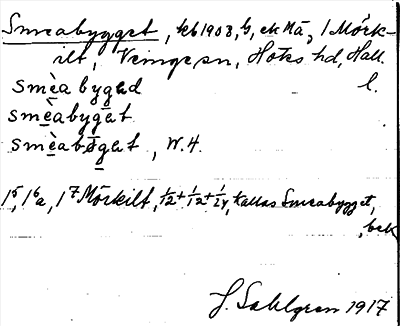 Smeabygget, kb 1908, b, ek Nä, 1 Mörk-
ilt, Veinge sn, Höks hd, Hall.
smèa bygəd l.
smèabygət
smèabøgət, W. H.
1⁵, 1⁶a, 1⁷ Mörkilt, 1/12 + 1/12 + 1/24, kallas Smeabygget,
, bek
J. Sahlgren 1917